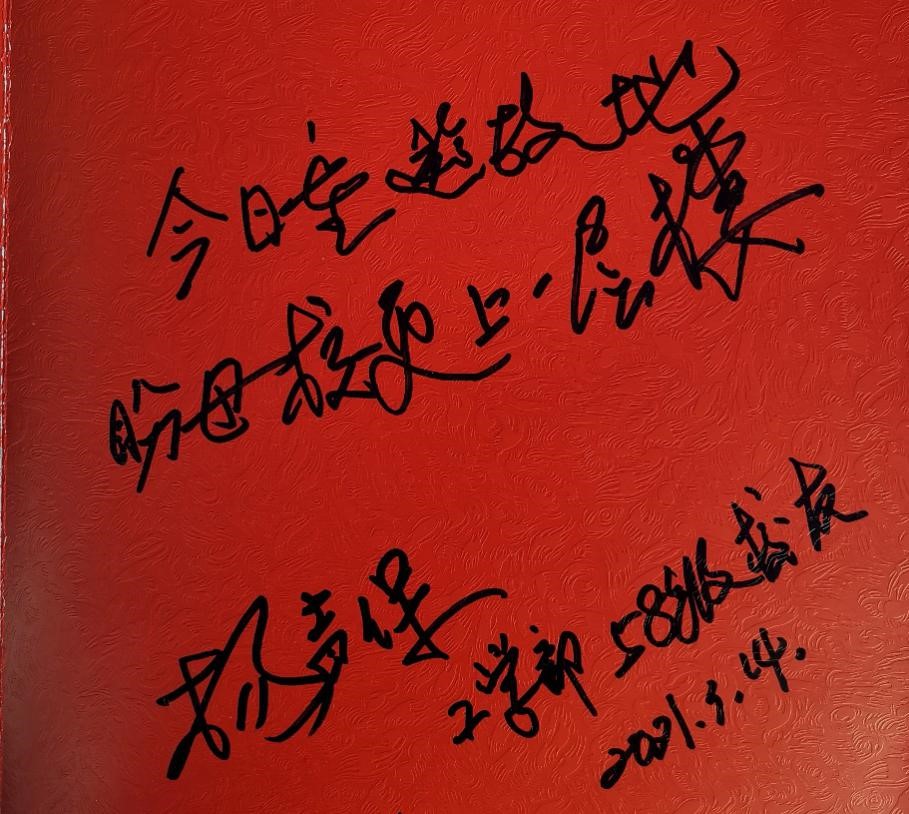 今日重遊故地
盼母校更上一层楼
杨声保
工学部 58级校友
2021.5.14.